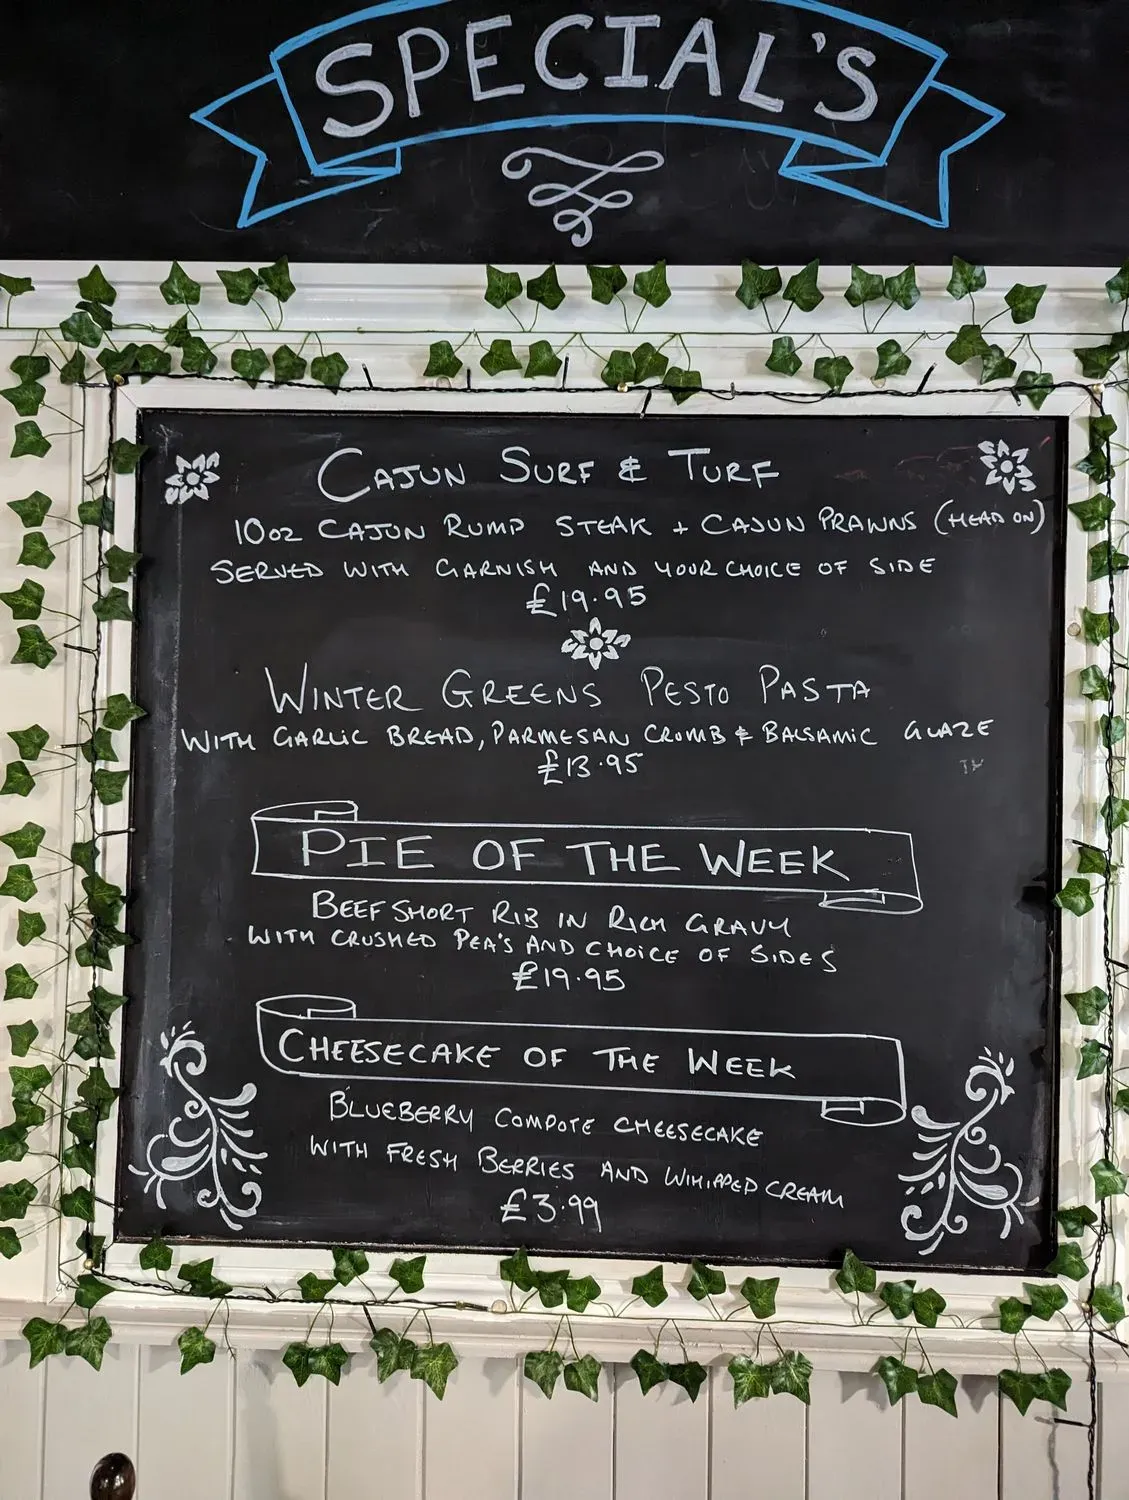 SPECIAL'S
CAJUN SURF & TURF
10oz CAJUN RUMP STEAK + CAJUN PRAWNS (HEAD ON)
SERVED WITH GARNISH AND YOUR CHOICE OF SIDE
£19.95
WINTER GREENS PESTO PASTA
WITH GARLIC BREAD, PARMESAN CRUMB & BALSAMIC GLAZE
£13.95
PIE OF THE WEEK
BEEF SHORT RIB IN RICH GRAVY
WITH CRUSHED PEA'S AND CHOICE OF SIDES
£19.95
CHEESECAKE OF THE WEEK
BLUEBERRY COMPOTE CHEESECAKE
WITH FRESH BERRIES AND WHIPPED CREAM
£3.99